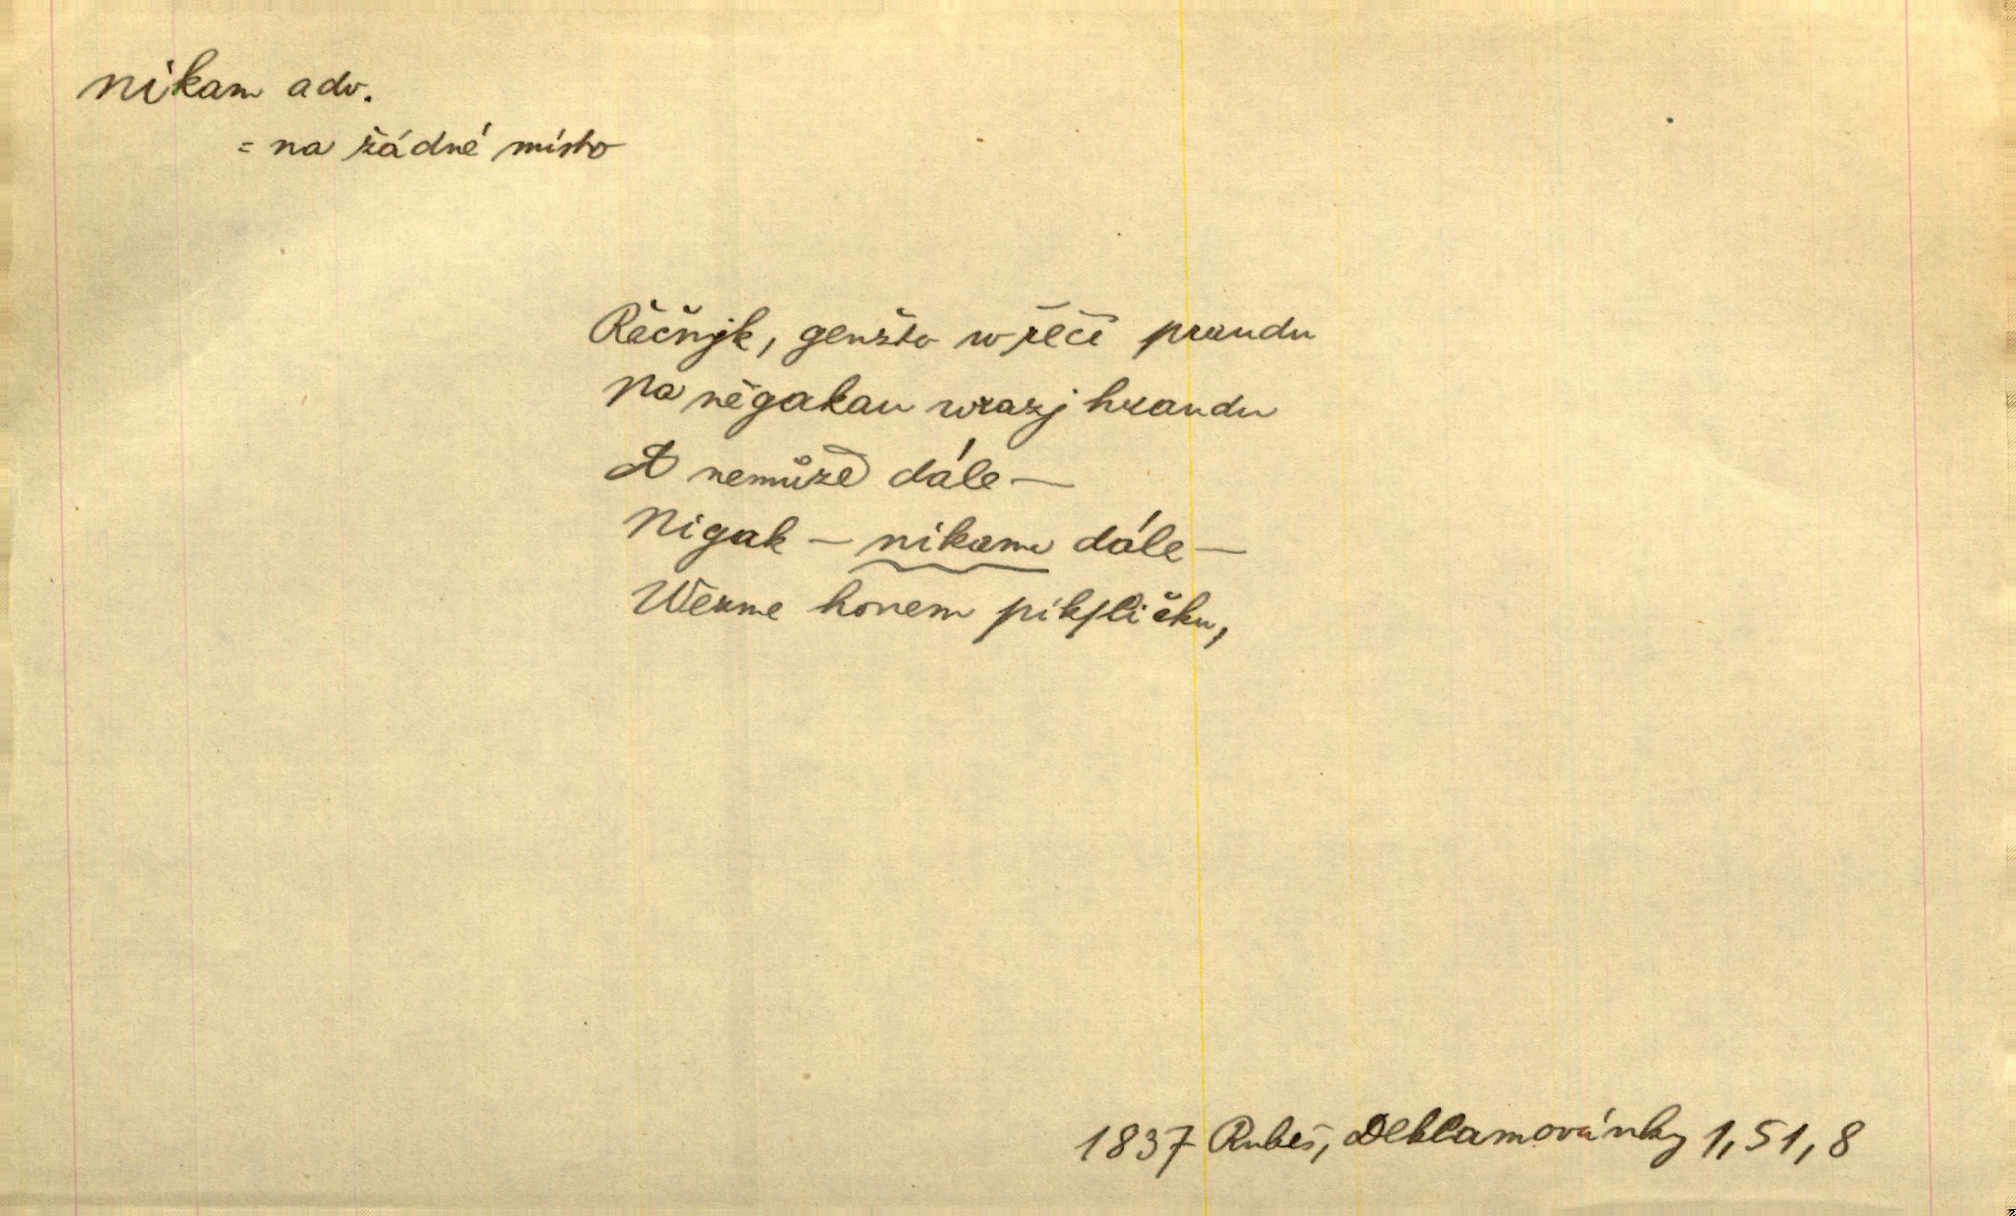 nikam adv.
= na žádné místo
Řečnjk, genžto w řeči praudu
Na něgakau wrazj hraudu
A nemůže dále —
Nigak — nikam dále —
Wezme honem pikſličku,
1837 Rubeš, Deklamovánky 1,51,8